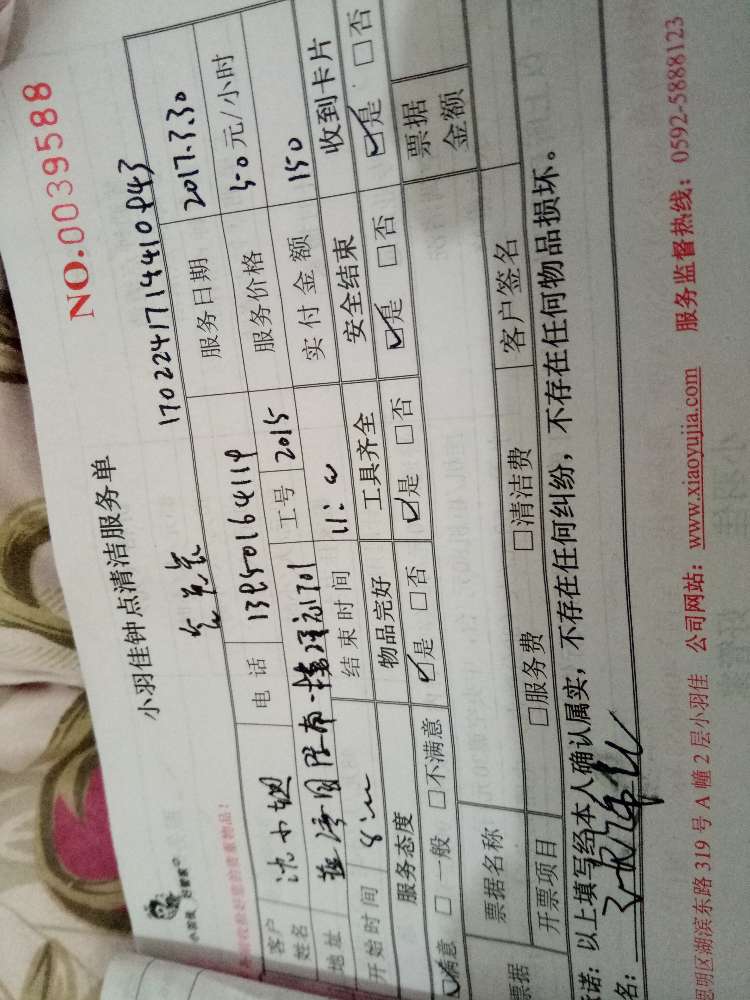 NO.0039588
小羽佳钟点清洁服务单
小羽佳 好管家
收好您的贵重物品!
客户姓名 沈小姐 电话 服务日期 2017.3.30
地址 工号 2015 服务价格 50元/小时
开始时间 8:00 结束时间 11:00 实付金额 150
服务态度 物品完好 工具齐全 安全结束 收到卡片
☑满意 □一般 □不满意 ☑是 □否 ☑是 □否 ☑是 □否 ☑是 □否
票据名称 票据金额
票据 开票项目 □服务费 □清洁费 客户签名
诺:以上填写经本人确认属实,不存在任何纠纷,不存在任何物品损坏。
名:
思明区湖滨东路 319 号 A 幢 2 层小羽佳 公司网站:www.xiaoyujia.com 服务监督热线:0592-5888123